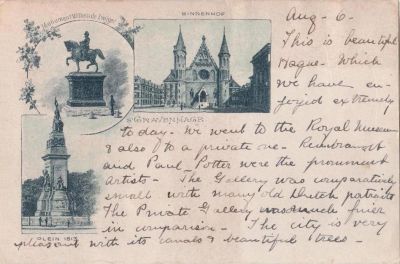 Monument Willem de Eerste
BINNENHOF
Aug - 6 -
This is beautiful
Hague - which
we have en-
joyed extremely
S'GRAVENHAGE
to day - We went to the Royal Museum
& also to a private one - Rembrandt
and Paul Potter were the prominent
Artists - The Gallery was comparatively
small with many old Dutch portraits
The Private Gallery was much finer
in comparison - The city is very
pleasant with its canals & beautiful trees -
PLEIN 1813